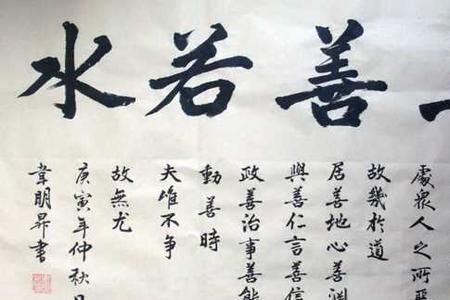 善若水
處衆人之所惡
故幾於道
居善地心善淵
與善仁言善信
政善治事善能
動善時
夫唯不争
故無尤
庚寅年仲秋
韋明昇書